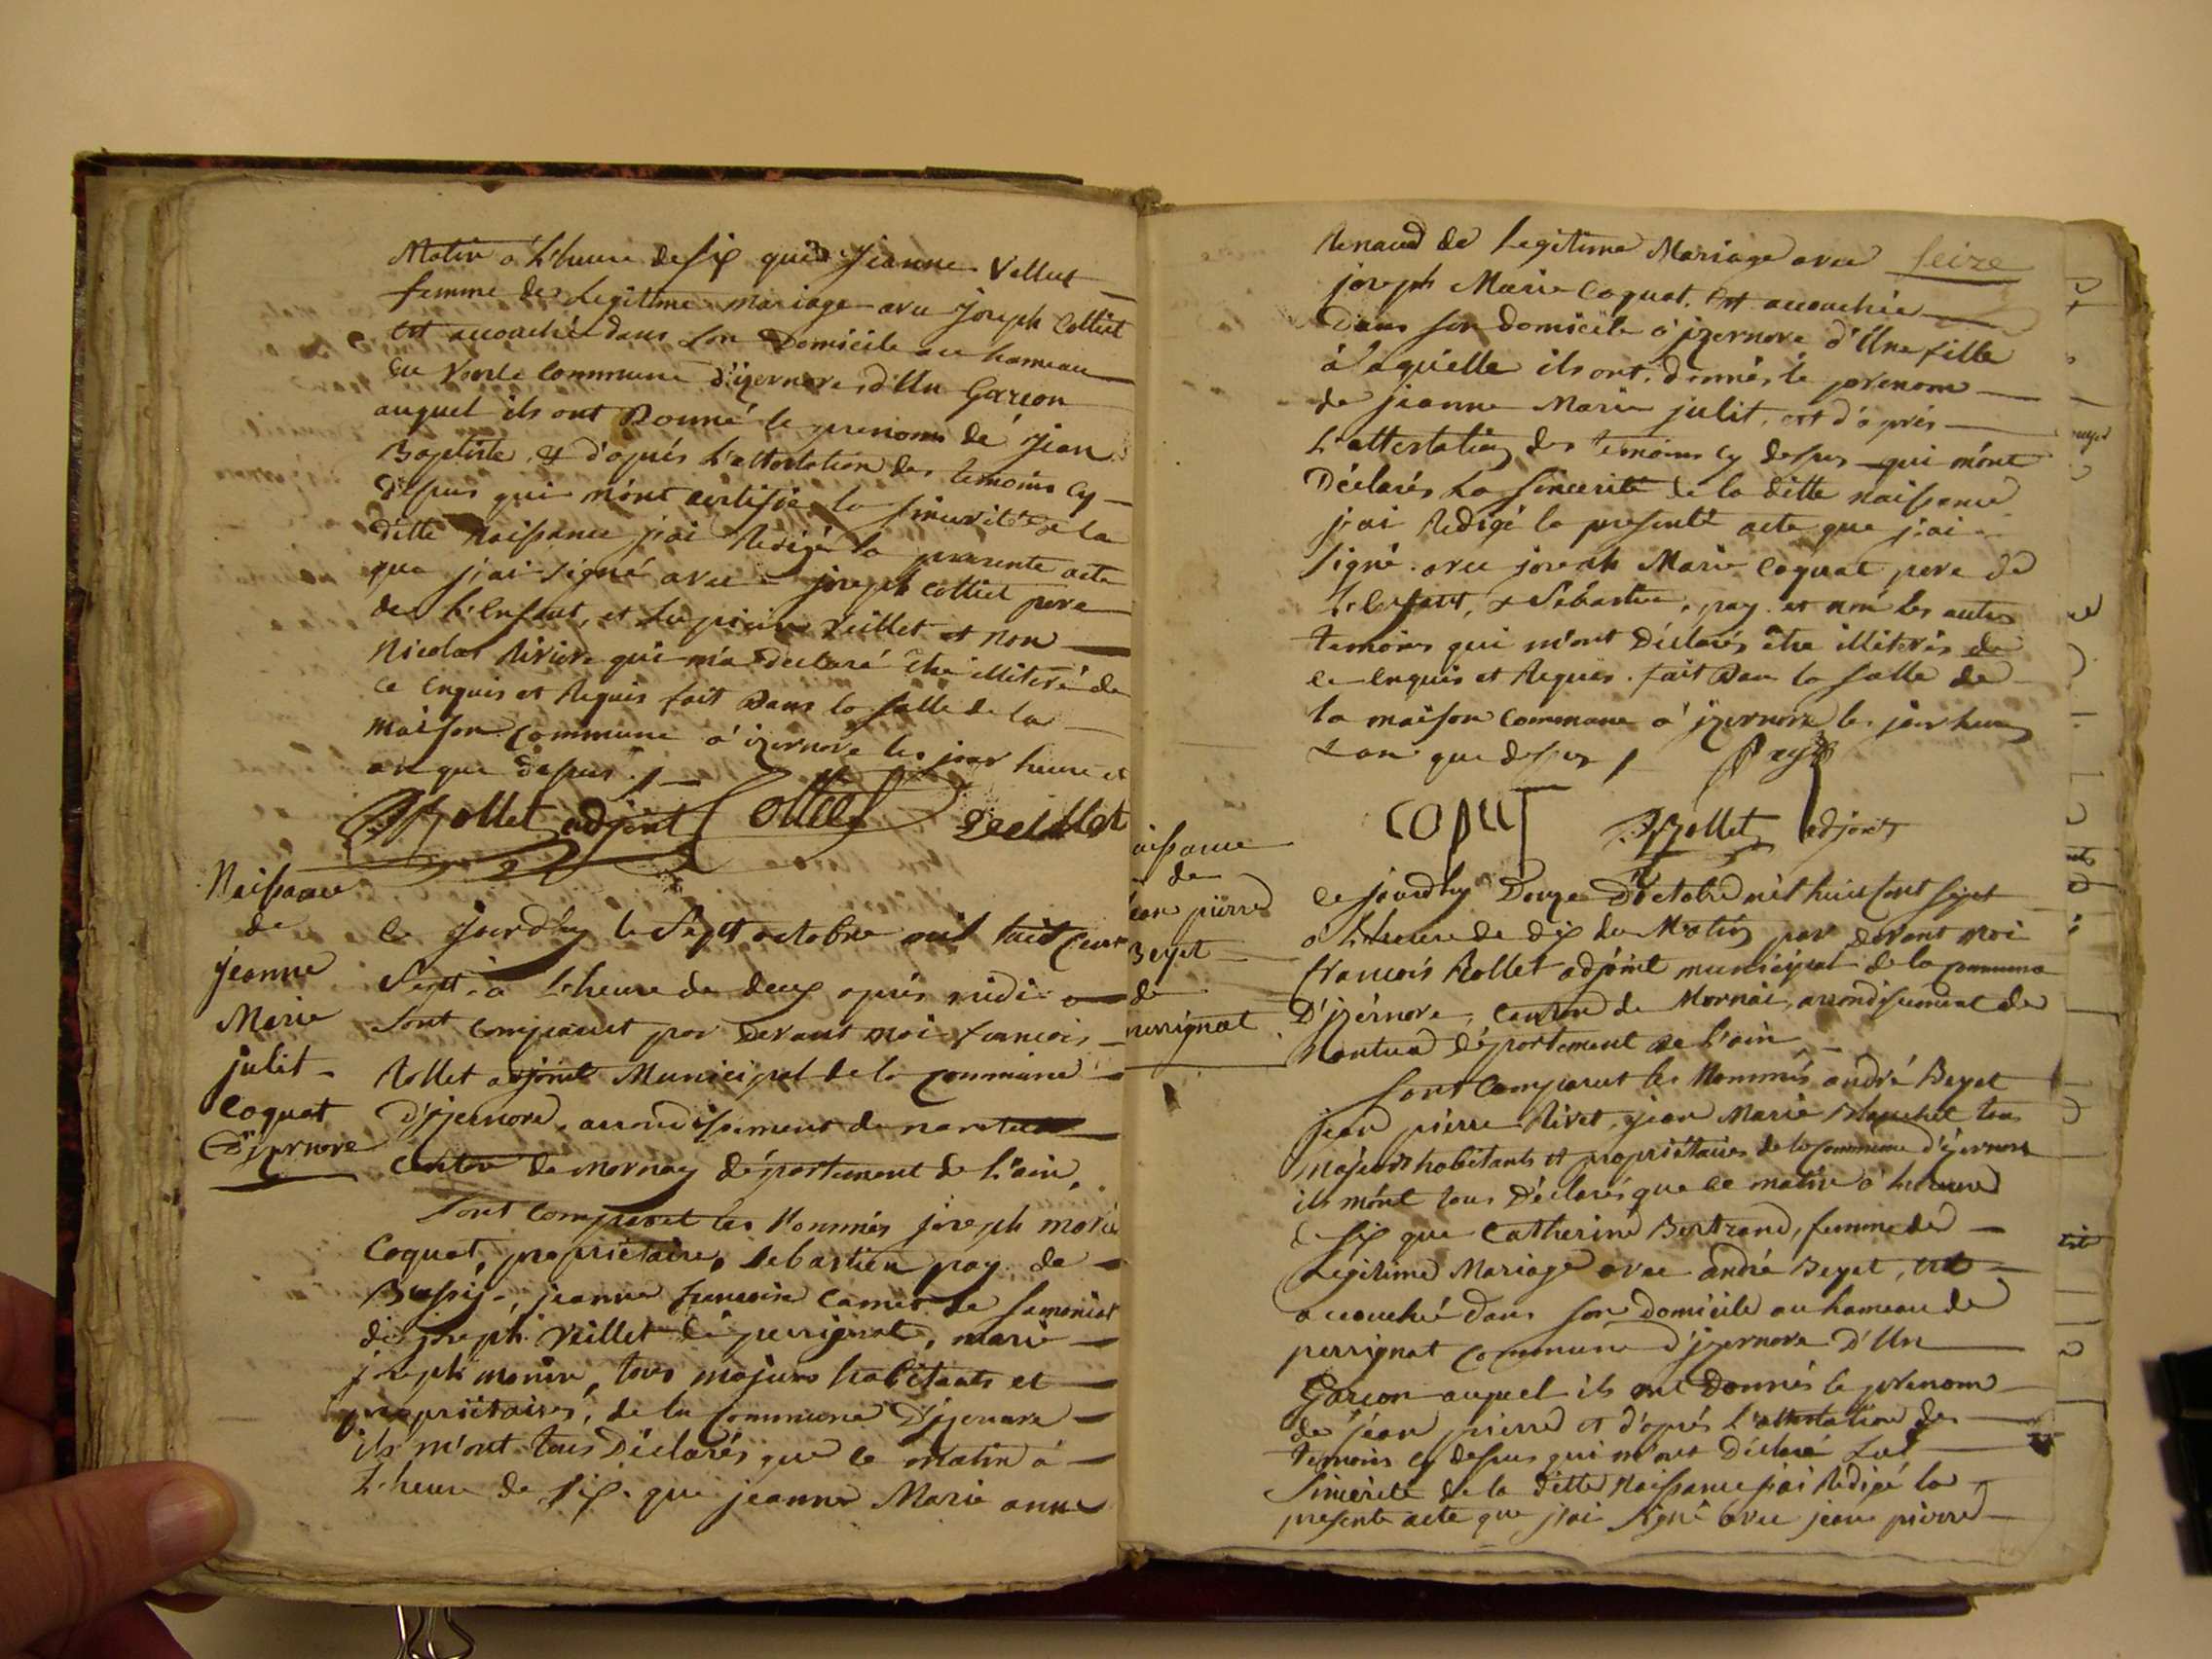 Matin à l'heure de six que Jeanne Vellut
femme de legitime mariage avec joseph Colliet
est accouchée dans son Domicile au hameau
Commune d'izernore, d'Un Garcon
auquel ils ont Donné le prenom de Jean
Baptiste, & d'aprés l'attestation des temoins cy
dessus qui m'ont certifié la sincerité de la
ditte Naissance j'ai Redigé la presente acte
que j'ai signé avec joseph Colliet pere
de l'Enfant, et veillet et non
Nicolas Riviere qui m'a declaré être illiteré de
ce Enquis et Requis fait Dans la salle de la
maison Commune à izernore les jour heure et
an que dessus ./.
Rollet adjoint Colliet Veillet
Naissance
de
jeanne
Marie
julit
Coquat
D'izernore
Ce jourdhuy le Sept octobre mil huit Cent
Sept à l'heure de deux aprés midi
Sont Comparut par Devant moi francois
Rollet adjoint Municipal de la Commune
D'jzernore, arrondissement de nantua
Canton de mornay département de l'ain,
Sont Comparut les Nommés joseph marie
Coquat, propriétaire, Sebastien pay de
jeanne de samoniat
joseph Veillet de perrignat, marie
joseph monin, tous majeurs habitants et
propriétaires, de la Commune D'jzernore
ils m'ont tous Déclarés que ce matin à
l'heure de six que jeanne Marie anne
Renaud de Legitime Mariage avec seize
joseph Marie Coquat, est accouchée
Dans son Domicile à jzernore d'Une fille
à laquelle ils ont donnés le prenom
de jeanne Marie julit, et d'aprés
L'attestation des temoins cy dessus qui m'ont
Déclarés La sincerité de la ditte naissance
j'ai Redigé la presente acte que j'ai
signé avec joseph Marie Coquat pere de
l'Enfant, & Sébastien, pay et non les autres
temoins qui m'ont Déclarés être illiterés de
ce Enquis et Requis. fait Dans la salle de
la maison Commune à jzernore les jour heure
& an que dessus ./. Pay
Rollet adjoint
aissance
de
ean pierre
Beyet
de
perrignat
Ce jourdhuy Douze D'octobre mil huit Cent sept
à l'heure de dix du Matin par devant moi
francois Rollet adjoint municipal de la Commune
D'jzérnore, Canton de Mornai, arrondissement de
Nantua département de l'ain
Sont Comparut les Nommés andré Beyet
jean pierre Rivet, jean Marie Blanchet tous
Majeurs habitants et propriétaires de la Commune d'jzernore
ils m'ont tous Déclarés que ce matin à l'heure
de six que Catherine Bertrand, femme de
Légitime Mariage avec andré Beyet, est
accouchée dans son Domicile au hameau de
perrignat Commune d'jzernore D'Un
Garcon auquel ils ont Donnés le prenom
de jean pierre et d'aprés l'attestation des
temoins cy dessus qui m'ont Déclaré La
Sincerité de la ditte Naissance j'ai Rédigé la
presente acte que j'ai signé avec jean pierre